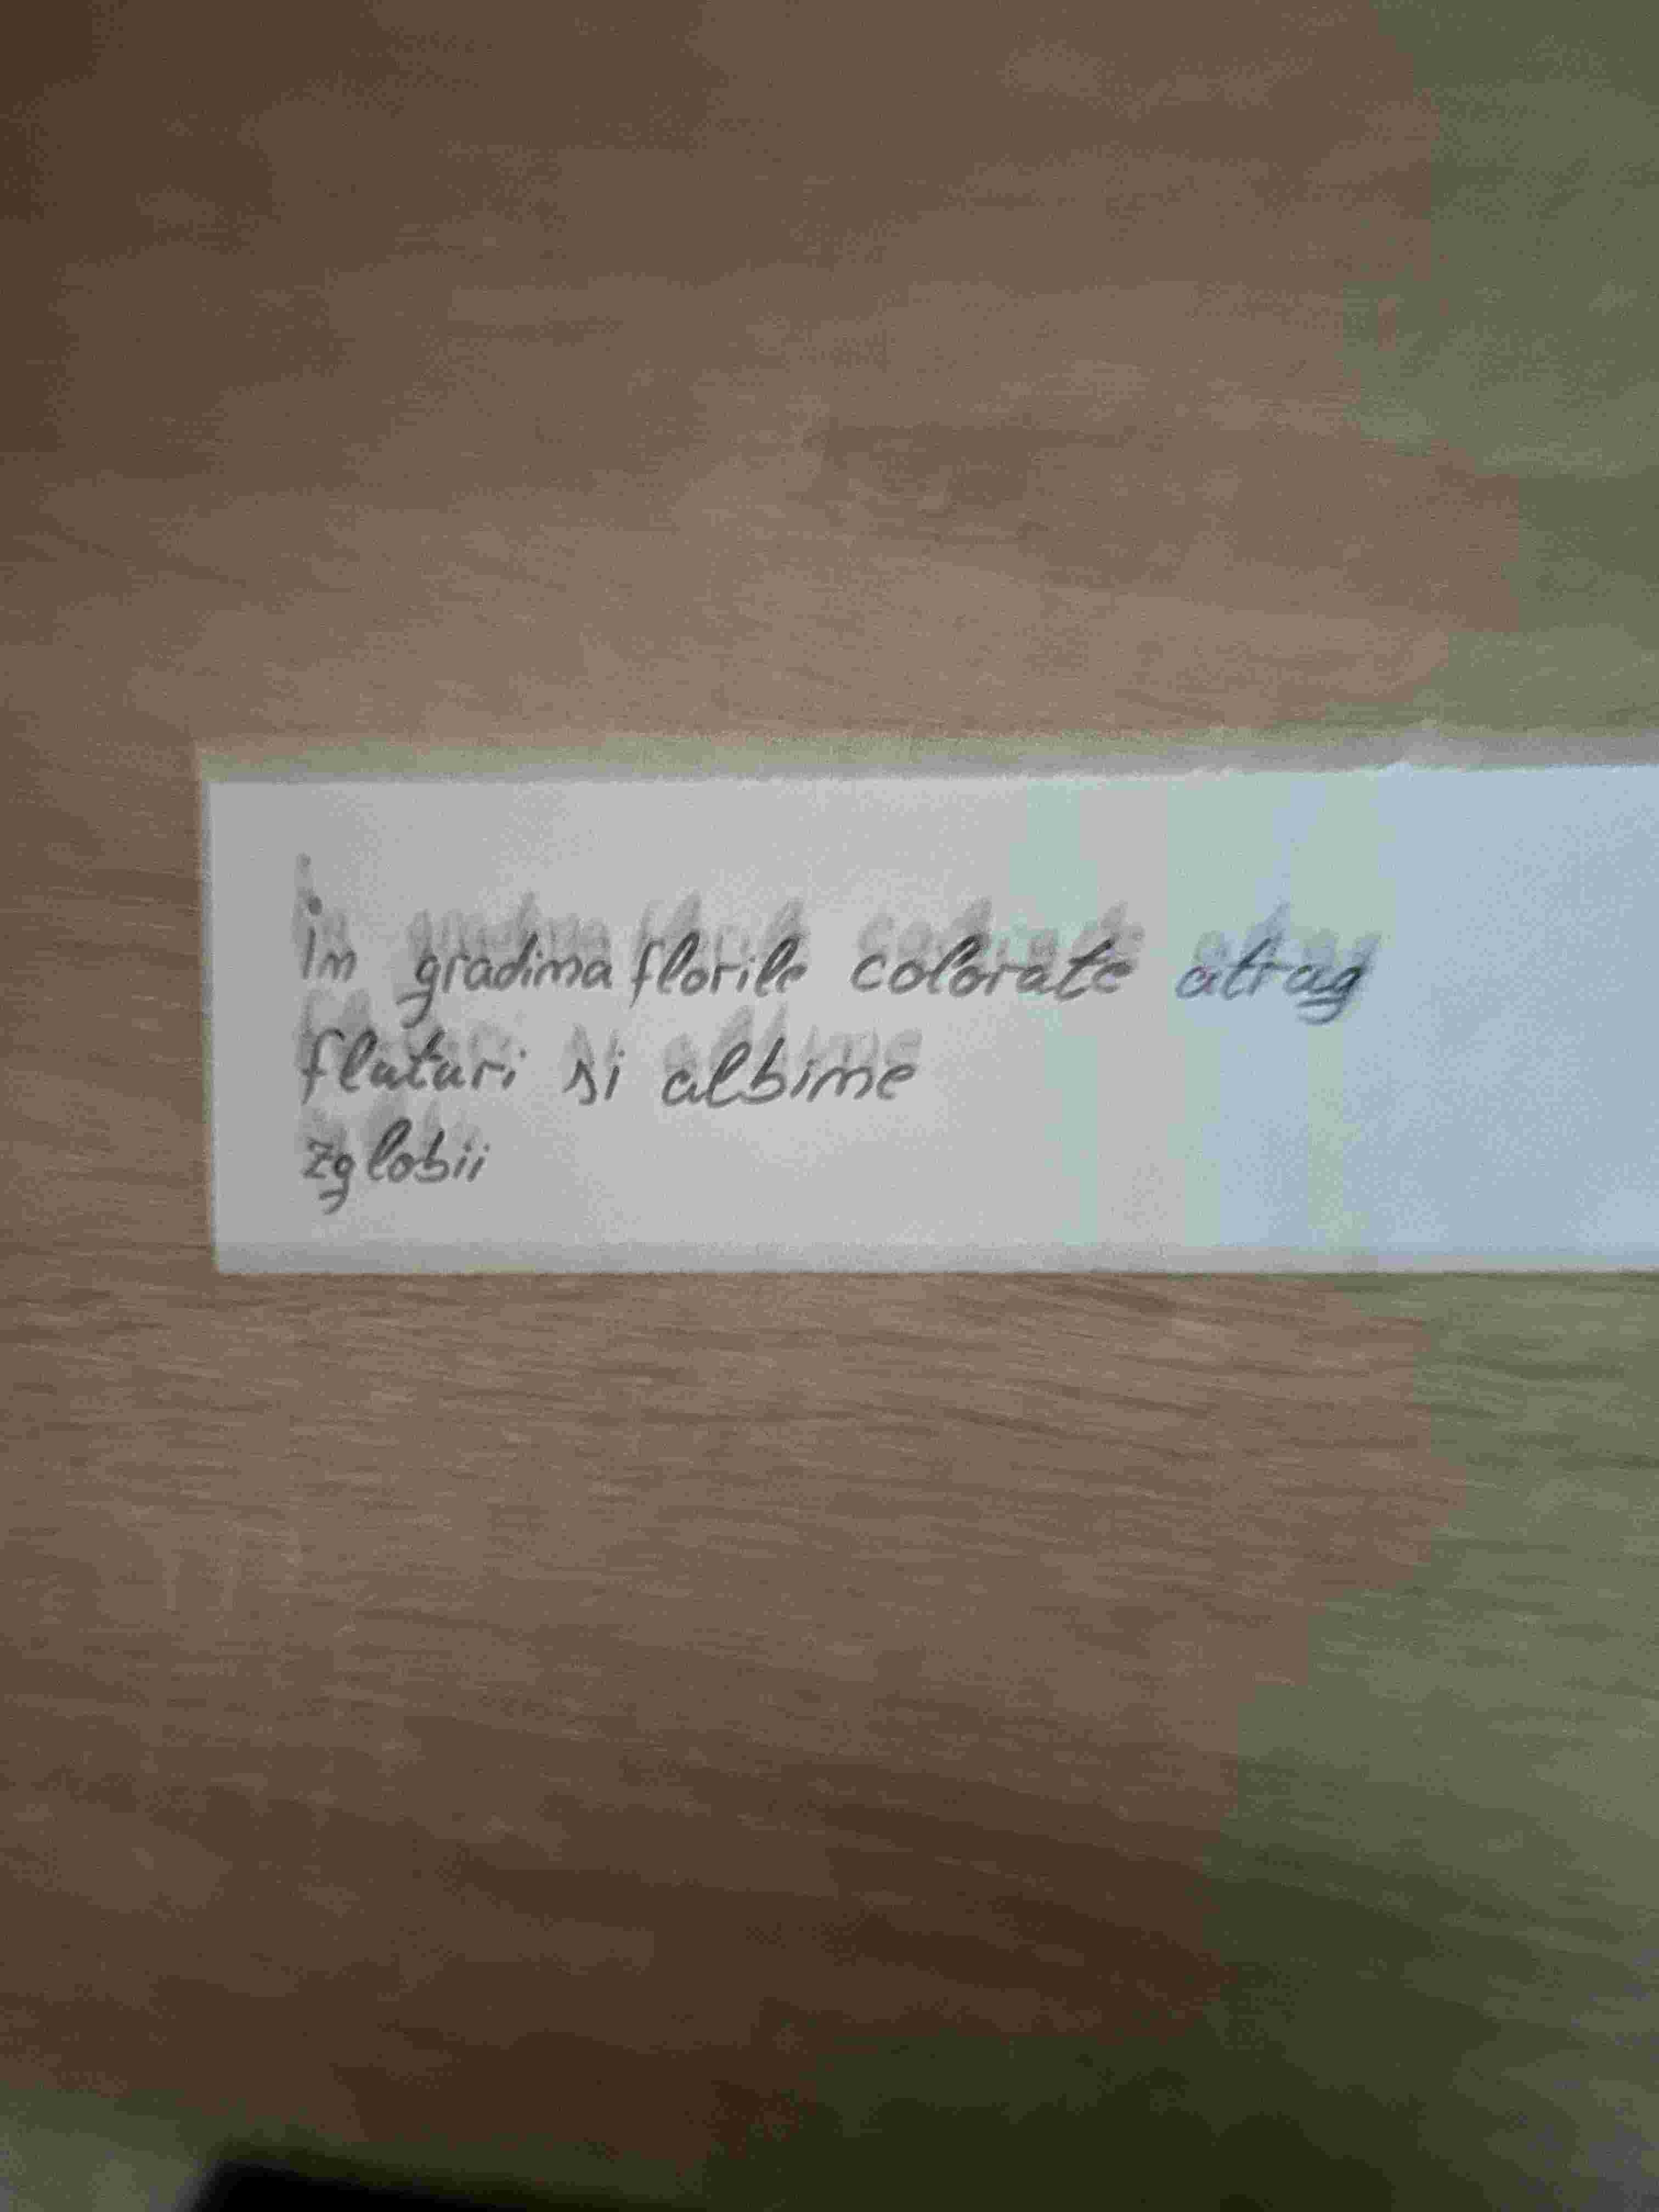 in gradina florile colorate atrag
fluturi si albine
zglobii